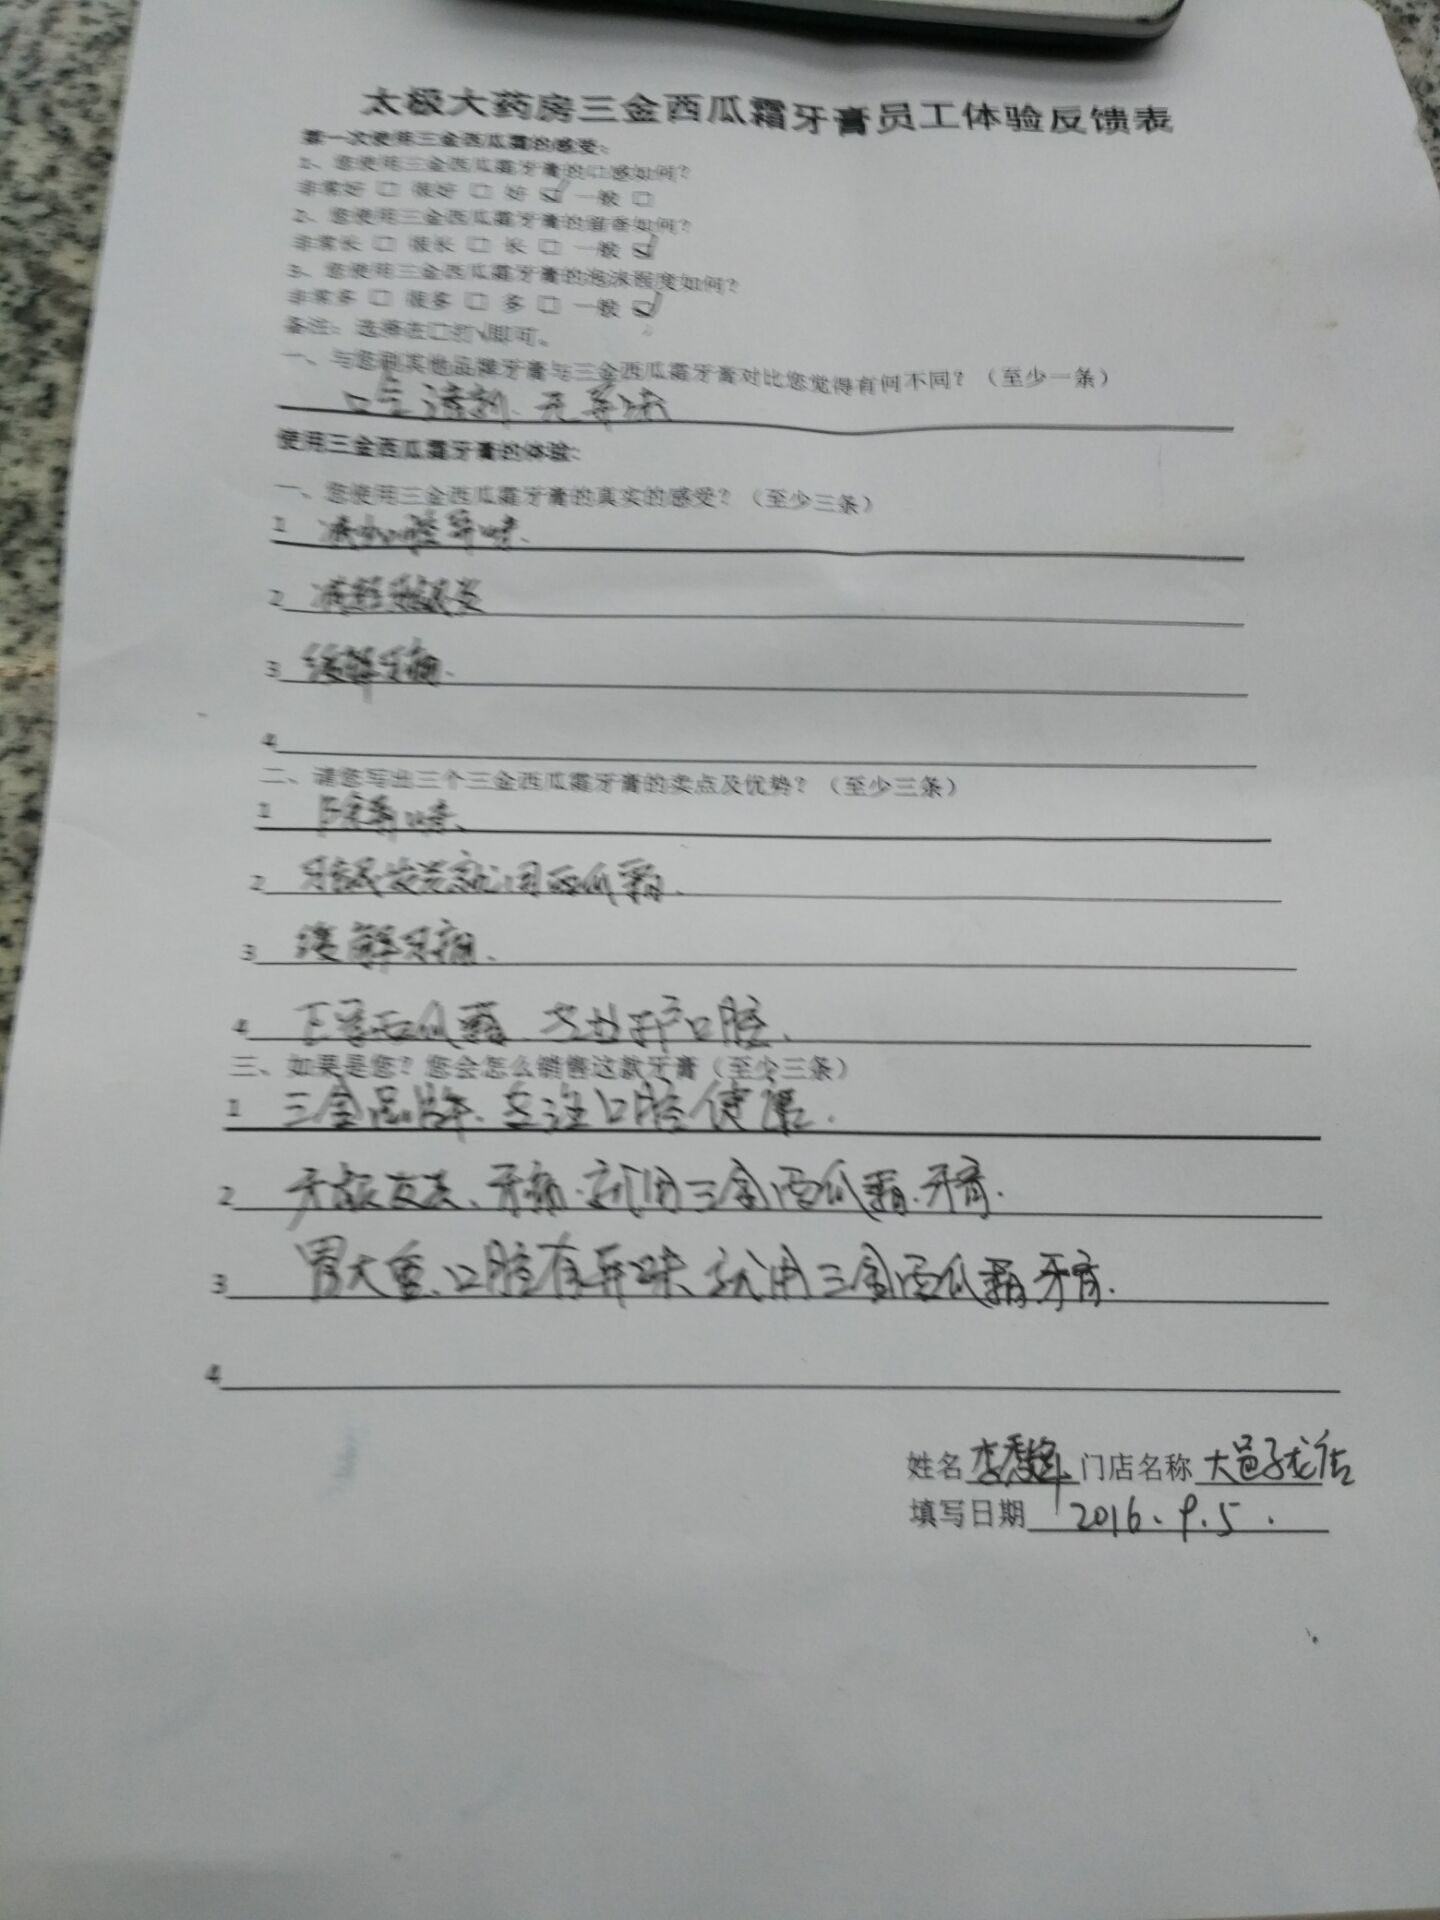 太极大药房三金西瓜霜牙膏员工体验反馈表
第一次使用三金西瓜霜的感受：
1、您使用三金西瓜霜牙膏的口感如何？
非常好 □ 很好 □ 好 ☑ 一般 □
2、您使用三金西瓜霜牙膏的留香如何？
非常长 □ 很长 □ 长 □ 一般 ☑
3、您使用三金西瓜霜牙膏的泡沫程度如何？
非常多 □ 很多 □ 多 □ 一般 ☑
备注：选择在□打√即可。
一、与您刷其他品牌牙膏与三金西瓜霜牙膏对比您觉得有何不同？（至少一条）
口气清新、无异味
使用三金西瓜霜牙膏的体验：
一、您使用三金西瓜霜牙膏的真实的感受？（至少三条）
1 减少口腔异味、
2 减轻牙龈炎
3 缓解牙痛、
4
二、请您写出三个三金西瓜霜牙膏的卖点及优势？（至少三条）
1 除异味、
2 牙龈发炎就用西瓜霜、
3 缓解牙痛、
4 正宗西瓜霜、专业护口腔、
三、如果是您？您会怎么销售这款牙膏（至少三条）
1 三金品牌、专注口腔健康、
2 牙龈发炎、牙痛、就用三金西瓜霜牙膏、
3 胃火重、口腔有异味、就用三金西瓜霜牙膏、
4
姓名 李 门店名称 大邑子龙店
填写日期 2016.9.5.